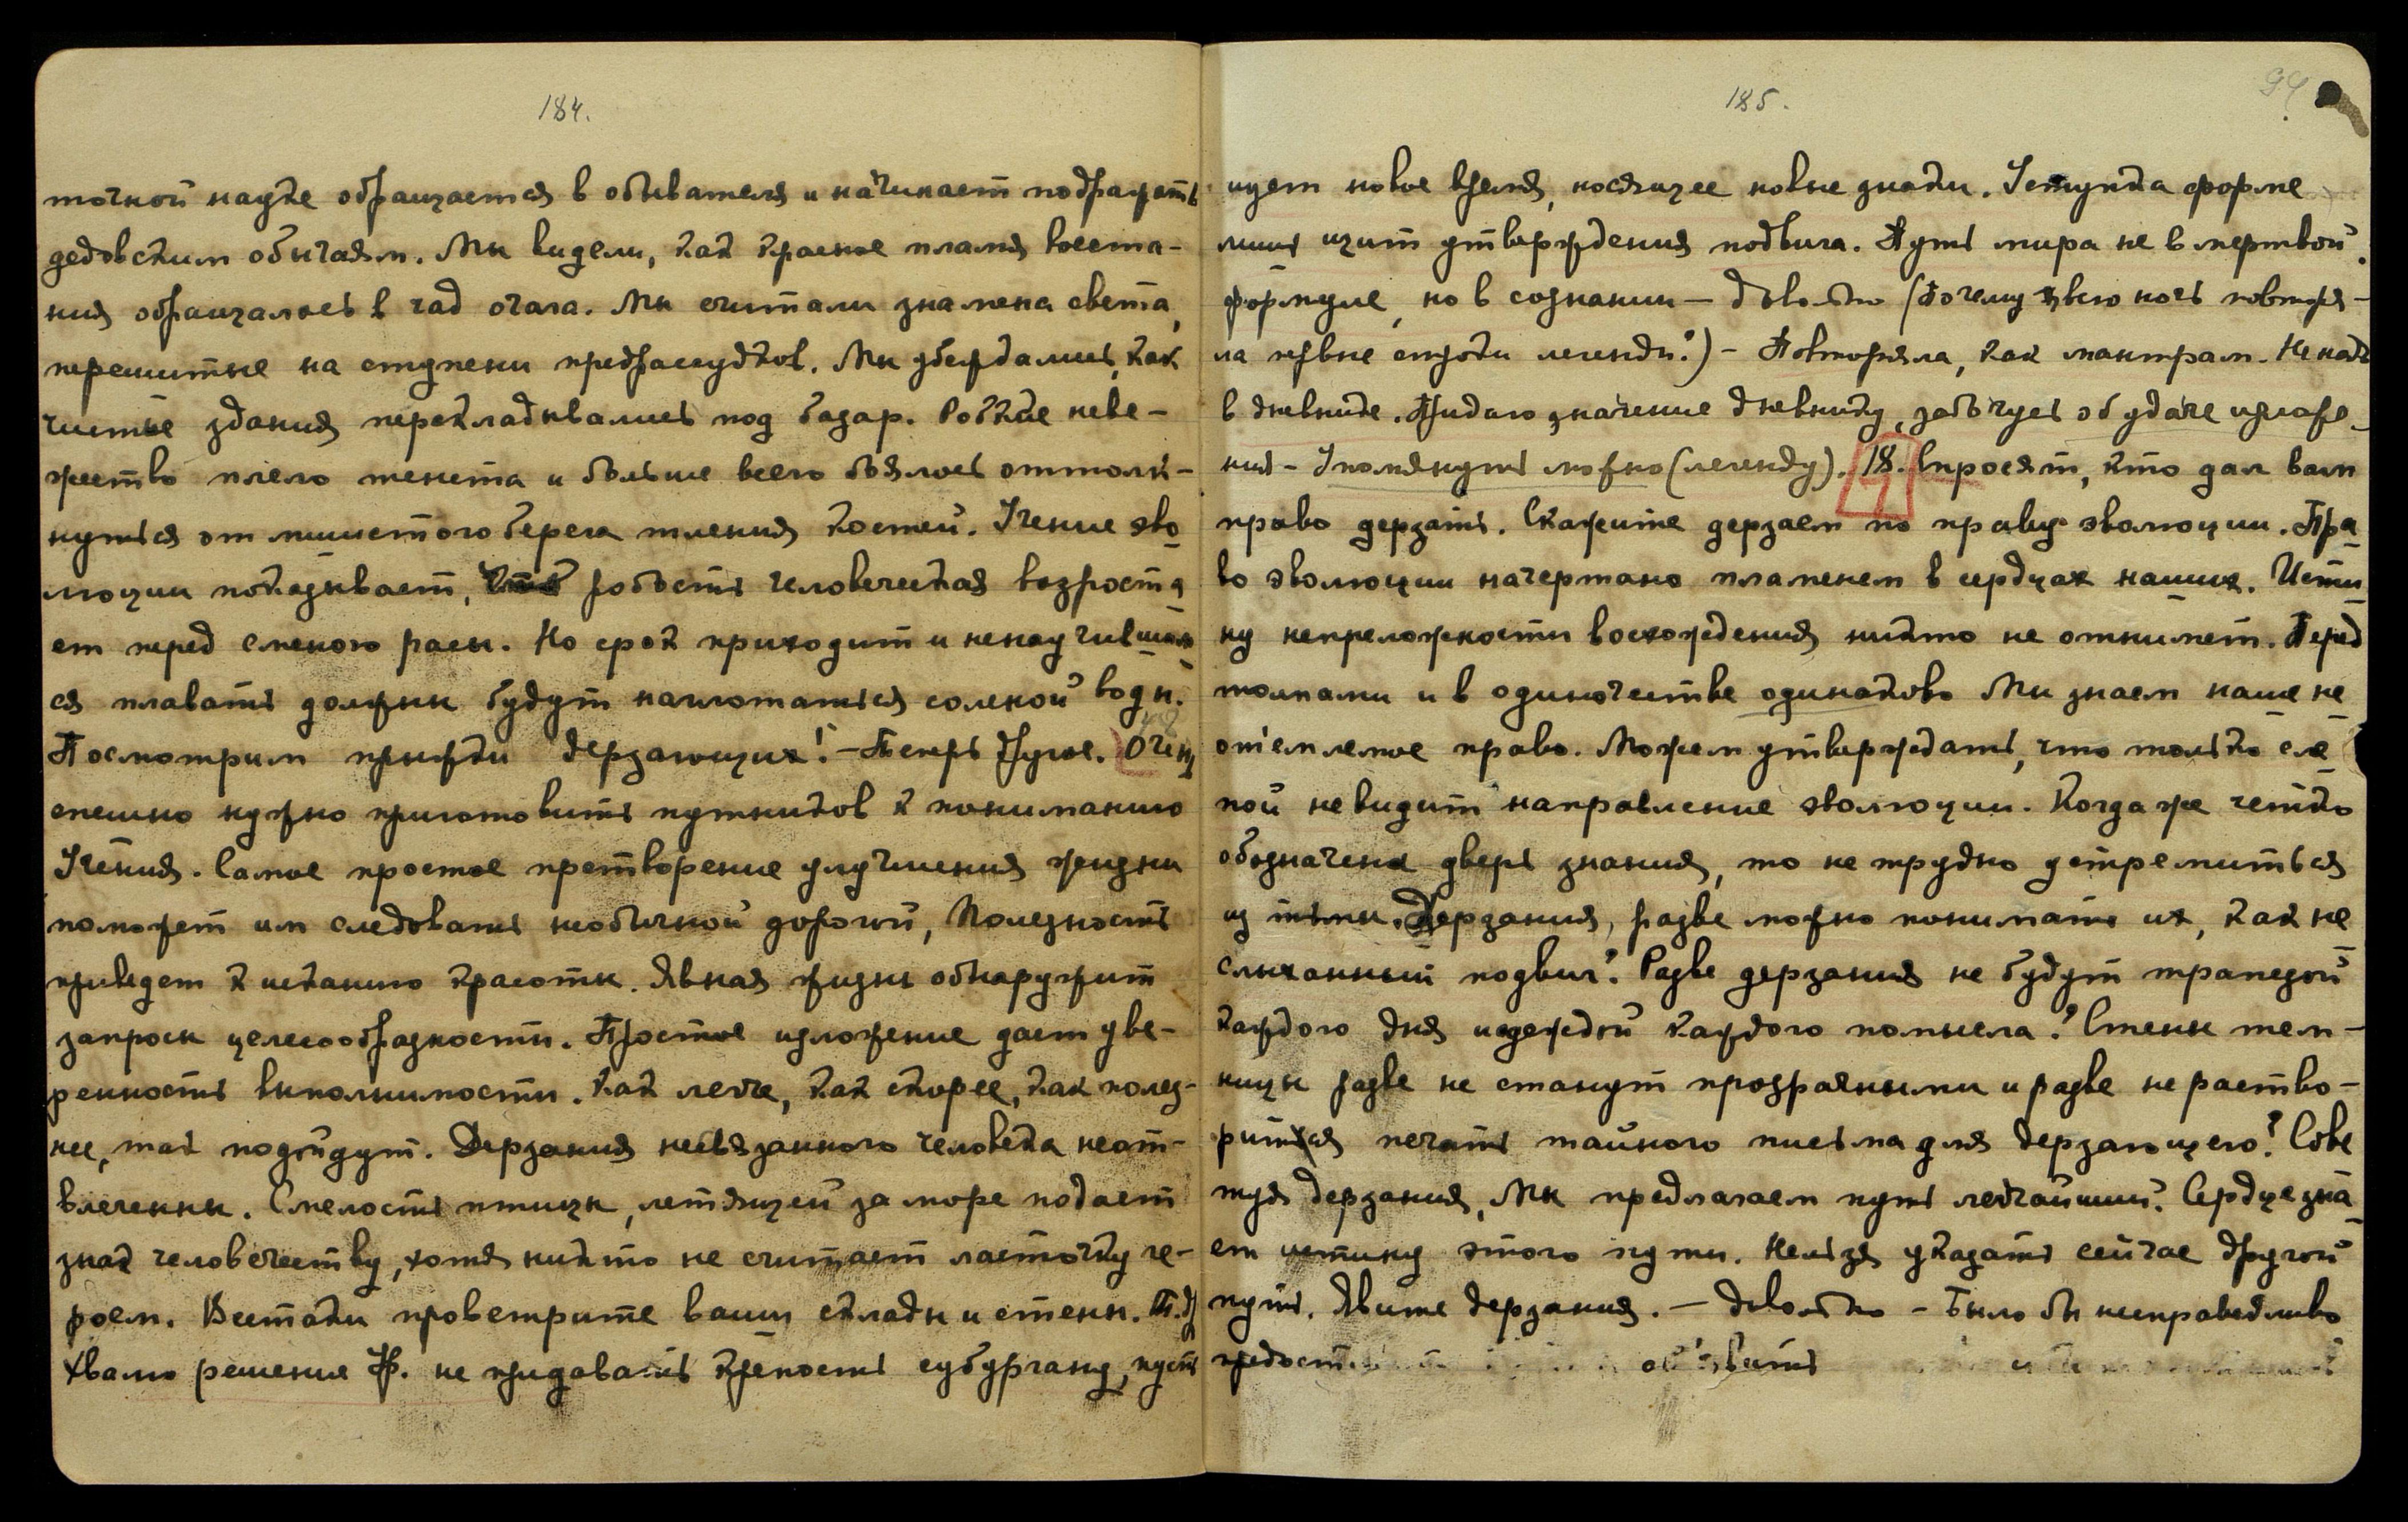 184.
точной науке обращается в обывателя и начинает подражать
дедовским обычаям. Мы видели, как красное пламя восста-
ния обращалось в чад очага. Мы считали знамена света,
перешитые на ступени предрассудков. Мы убеждались, как
чистые здания перекладывались под базар. Робкое неве-
жество плело тенета и больше всего боялось оттолк-
нуться от мшистого берега тления костей. Учение эво
люции показывает, робость человеческая возроста
ет перед сменою расы. Но срок приходит и ненаучившие
ся плавать должны будут наглотаться соленой воды.
Посмотрим прыжки дерзающих! – Теперь другое. Очень
спешно нужно приготовить путников к пониманию
Учения. Самое простое претворение улучшения жизни
поможет им следовать необычной дорогой, Полезность
приведет к исканию красоты. Явная жизнь обнаружит
запросы целесообразности. Простое изложение дает уве-
ренность выполнимости. Как легче, как скорее, как полез-
нее, так подойдут. Дерзания несвязанного человека неот-
влеченны. Смелость птицы, летящей за море подает
знак человечеству, хотя никто не считает ласточку ге-
роем. Всетаки проветрите ваши склады и стены.
Хвалю решение Ф. не придавать крепость субургану, пусть
185.
94
ищет новое время, носящее новые знаки. Уступка форме
лишь щит утверждения подвига. Путь мира не в мертвой
формуле, но в сознании – довольно (Почему всю ночь повторя-
ла первые строки легенды?) – Повторяла, как мантрам. Не надо
в дневнике. Придаю значение дневнику, заботясь об удаче изложе-
ния – Упомянуть можно (легенду). 18. Спросят, кто дал вам
право дерзать. Скажите дерзаем по праву эволюции. Пра
во эволюции начертано пламенем в сердцах наших. Исти
ну непреложности восхождения никто не отнимет. Перед
толпами и в одиночестве одинаково Мы знаем наше не
отъемлемое право. Можем утверждать, что только сле
пой не видит направление эволюции. Когда же четко
обозначена дверь знания, то не трудно устремиться
из тьмы. Дерзания, разве можно понимать их, как не
слыханный подвиг? Разве дерзания не будут трапезой
каждого дня и одеждой каждого помысла? Стены тем-
ницы разве не станут прозрачными и разве не раство-
рится печать тайного письма для дерзающего? Сове
туя дерзания, Мы предлагаем путь легчайший. Сердце зна
ет истину этого пути. Нельзя указать сейчас другой
путь. Явите дерзания. – довольно – Было бы несправедливо